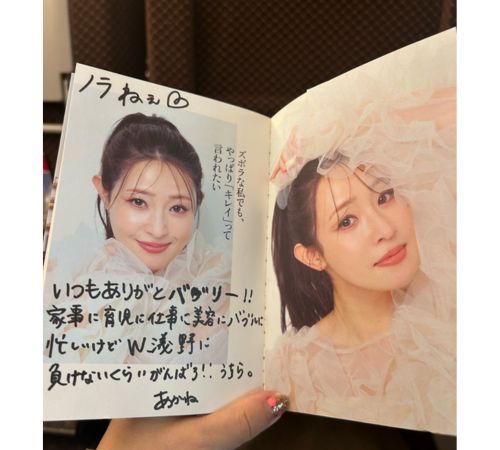 ノラねぇ♡
ズボラな私でも、
やっぱり「キレイ」って
言われたい
いつもありがとバブリー!!
家事に育児に仕事に美容にバブルに
忙しいけどW浅野に
負けないくらいがんばろ!!うちら。
あかね